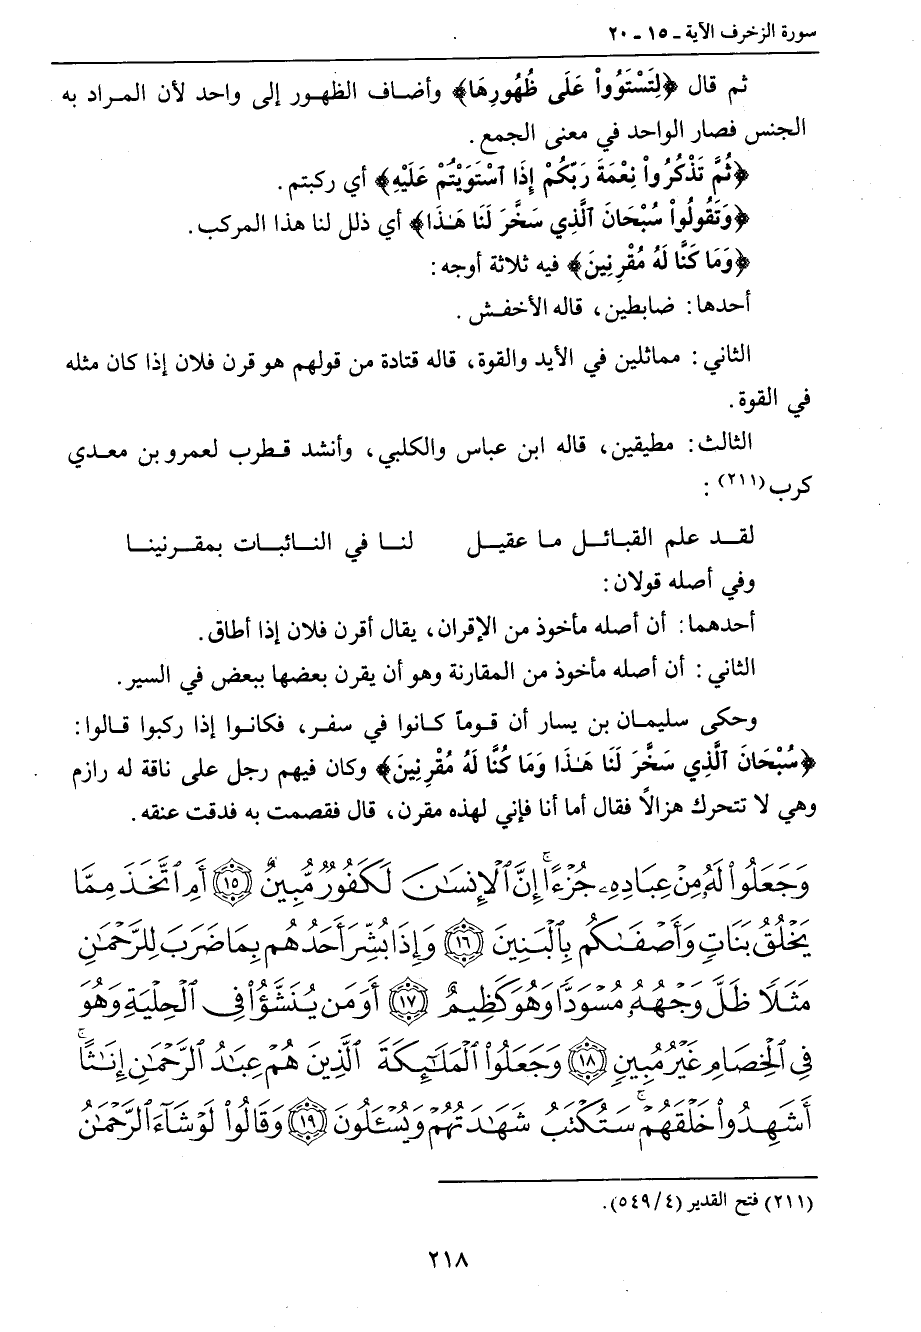 سورة الزخرف الآية ـ ١٥ ـ ٢٠
ثم قال ﴿لِتَسْتَوُواْ عَلَى ظُهُورِهَا﴾ وأضاف الظهور إلى واحد لأن المراد به
الجنس فصار الواحد في معنى الجمع.
﴿ثُمَّ تَذْكُرُواْ نِعْمَةَ رَبِّكُمْ إِذَا ٱسْتَوَيْتُمْ عَلَيْهِ﴾ أي ركبتم.
﴿وَتَقُولُواْ سُبْحَانَ ٱلَّذِي سَخَّرَ لَنَا هَـٰذَا﴾ أي ذلل لنا هذا المركب.
﴿وَمَا كُنَّا لَهُ مُقْرِنِينَ﴾ فيه ثلاثة أوجه:
أحدها: ضابطين، قاله الأخفش.
الثاني: مماثلين في الأيد والقوة، قاله قتادة من قولهم هو قرن فلان إذا كان مثله
في القوة.
الثالث: مطيقين، قاله ابن عباس والكلبي، وأنشد قطرب لعمرو بن معدي
كرب(٢١١):
لقد علم القبائل ما عقيل لنا في النائبات بمقرنينا
وفي أصله قولان:
أحدهما: أن أصله مأخوذ من الإقران، يقال أقرن فلان إذا أطاق.
الثاني: أن أصله مأخوذ من المقارنة وهو أن يقرن بعضها ببعض في السير.
وحكى سليمان بن يسار أن قوماً كانوا في سفر، فكانوا إذا ركبوا قالوا:
﴿سُبْحَانَ ٱلَّذِي سَخَّرَ لَنَا هَـٰذَا وَمَا كُنَّا لَهُ مُقْرِنِينَ﴾ وكان فيهم رجل على ناقة له رازم
وهي لا تتحرك هزالاً فقال أما أنا فإني لهذه مقرن، قال فقصمت به فدقت عنقه.
وَجَعَلُوا۟ لَهُۥ مِنْ عِبَادِهِۦ جُزْءًا ۚ إِنَّ ٱلْإِنسَـٰنَ لَكَفُورٌ مُّبِينٌ ١٥ أَمِ ٱتَّخَذَ مِمَّا
يَخْلُقُ بَنَاتٍ وَأَصْفَىٰكُم بِٱلْبَنِينَ ١٦ وَإِذَا بُشِّرَ أَحَدُهُم بِمَا ضَرَبَ لِلرَّحْمَـٰنِ
مَثَلًا ظَلَّ وَجْهُهُۥ مُسْوَدًّا وَهُوَ كَظِيمٌ ١٧ أَوَمَن يُنَشَّؤُا۟ فِى ٱلْحِلْيَةِ وَهُوَ
فِى ٱلْخِصَامِ غَيْرُ مُبِينٍ ١٨ وَجَعَلُوا۟ ٱلْمَلَـٰٓئِكَةَ ٱلَّذِينَ هُمْ عِبَـٰدُ ٱلرَّحْمَـٰنِ إِنَـٰثًا ۚ
أَشَهِدُوا۟ خَلْقَهُمْ ۚ سَتُكْتَبُ شَهَـٰدَتُهُمْ وَيُسْـَٔلُونَ ١٩ وَقَالُوا۟ لَوْ شَآءَ ٱلرَّحْمَـٰنُ
(٢١١) فتح القدير (٥٤٩/٤).
٢١٨